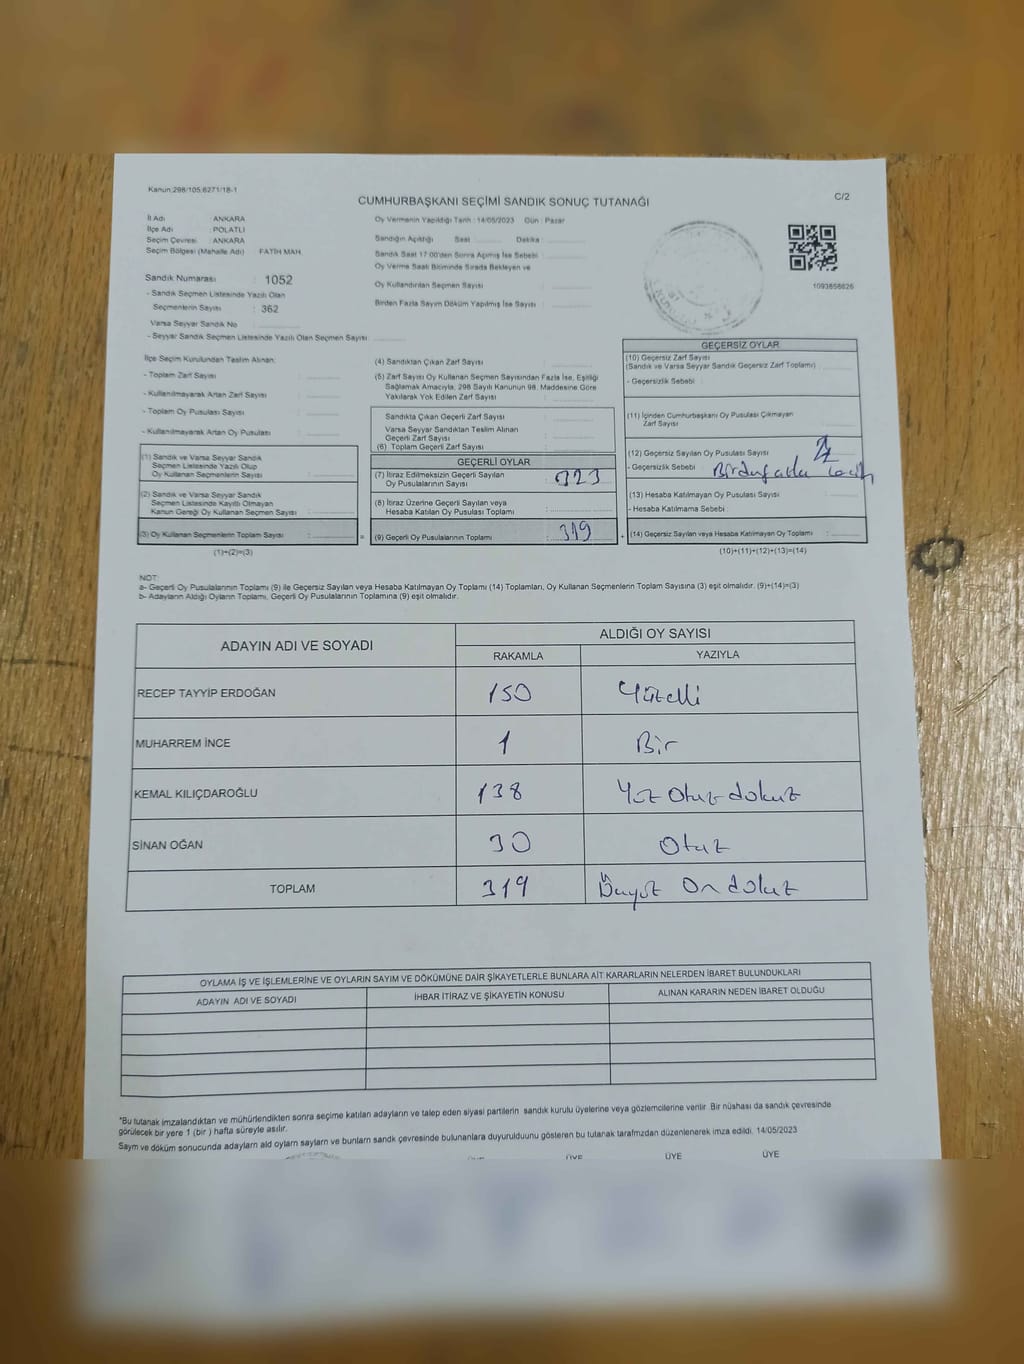 Kanun:298/105;6271/18-1
C/2
CUMHURBAŞKANI SEÇİMİ SANDIK SONUÇ TUTANAĞI
İl Adı : ANKARA
İlçe Adı : POLATLI
Seçim Çevresi : ANKARA
Seçim Bölgesi (Mahalle Adı) FATİH MAH.
Sandık Numarası : 1052
- Sandık Seçmen Listesinde Yazılı Olan
Seçmenlerin Sayısı : 362
Varsa Seyyar Sandık No
- Seyyar Sandık Seçmen Listesinde Yazılı Olan Seçmen Sayısı
Oy Vermenin Yapıldığı Tarih : 14/05/2023 Gün : Pazar
Sandığın Açıldığı Saat Dakika
Sandık Saat 17:00'den Sonra Açılmış İse Sebebi
Oy Verme Saati Bitiminde Sırada Bekleyen ve
Oy Kullandırılan Seçmen Sayısı
Birden Fazla Sayım Döküm Yapılmış İse Sayısı
1093858626
İlçe Seçim Kurulundan Teslim Alınan:
- Toplam Zarf Sayısı
- Kullanılmayarak Artan Zarf Sayısı
- Toplam Oy Pusulası Sayısı
- Kullanılmayarak Artan Oy Pusulası
(1) Sandık ve Varsa Seyyar Sandık
Seçmen Listesinde Yazılı Olup
Oy Kullanan Seçmenlerin Sayısı
(2) Sandık ve Varsa Seyyar Sandık
Seçmen Listesinde Kayıtlı Olmayan
Kanun Gereği Oy Kullanan Seçmen Sayısı
(3) Oy Kullanan Seçmenlerin Toplam Sayısı
(1)+(2)=(3)
(4) Sandıktan Çıkan Zarf Sayısı
(5) Zarf Sayısı Oy Kullanan Seçmen Sayısından Fazla İse, Eşitliği
Sağlamak Amacıyla, 298 Sayılı Kanunun 98. Maddesine Göre
Yakılarak Yok Edilen Zarf Sayısı
Sandıkta Çıkan Geçerli Zarf Sayısı
Varsa Seyyar Sandıktan Teslim Alınan
Geçerli Zarf Sayısı
(6) Toplam Geçerli Zarf Sayısı
GEÇERLİ OYLAR
(7) İtiraz Edilmeksizin Geçerli Sayılan
Oy Pusulalarının Sayısı 323
(8) İtiraz Üzerine Geçerli Sayılan veya
Hesaba Katılan Oy Pusulası Toplamı
(9) Geçerli Oy Pusulalarının Toplamı 319
GEÇERSİZ OYLAR
(10) Geçersiz Zarf Sayısı
(Sandık ve Varsa Seyyar Sandık Geçersiz Zarf Toplamı)
- Geçersizlik Sebebi
(11) İçinden Cumhurbaşkanı Oy Pusulası Çıkmayan
Zarf Sayısı
(12) Geçersiz Sayılan Oy Pusulası Sayısı
- Geçersizlik Sebebi
(13) Hesaba Katılmayan Oy Pusulası Sayısı
- Hesaba Katılmama Sebebi
(14) Geçersiz Sayılan veya Hesaba Katılmayan Oy Toplamı
(10)+(11)+(12)+(13)=(14)
NOT:
a- Geçerli Oy Pusulalarının Toplamı (9) ile Geçersiz Sayılan veya Hesaba Katılmayan Oy Toplamı (14) Toplamları, Oy Kullanan Seçmenlerin Toplam Sayısına (3) eşit olmalıdır. (9)+(14)=(3)
b- Adayların Aldığı Oyların Toplamı, Geçerli Oy Pusulalarının Toplamına (9) eşit olmalıdır.
ADAYIN ADI VE SOYADI ALDIĞI OY SAYISI
RAKAMLA YAZIYLA
RECEP TAYYİP ERDOĞAN 150 Yüzelli
MUHARREM İNCE 1 Bir
KEMAL KILIÇDAROĞLU 138 Yüz Otuz dokuz
SİNAN OĞAN 30 Otuz
TOPLAM 319 Üçyüz On dokuz
OYLAMA İŞ VE İŞLEMLERİNE VE OYLARIN SAYIM VE DÖKÜMÜNE DAİR ŞİKAYETLERLE BUNLARA AİT KARARLARIN NELERDEN İBARET BULUNDUKLARI
ADAYIN ADI VE SOYADI İHBAR İTİRAZ VE ŞİKAYETİN KONUSU ALINAN KARARIN NEDEN İBARET OLDUĞU
"Bu tutanak imzalandıktan ve mühürlendikten sonra seçime katılan adayların ve talep eden siyasi partilerin sandık kurulu üyelerine veya gözlemcilerine verilir. Bir nüshası da sandık çevresinde
görülecek bir yere 1 (bir ) hafta süreyle asılır.
Saym ve döküm sonucunda adaylarn ald oylarn saylarn ve bunlarn sandk çevresinde bulunanlara duyurulduunu gösteren bu tutanak tarafmzdan düzenlenerek imza edildi. 14/05/2023
ÜYE ÜYE ÜYE ÜYE